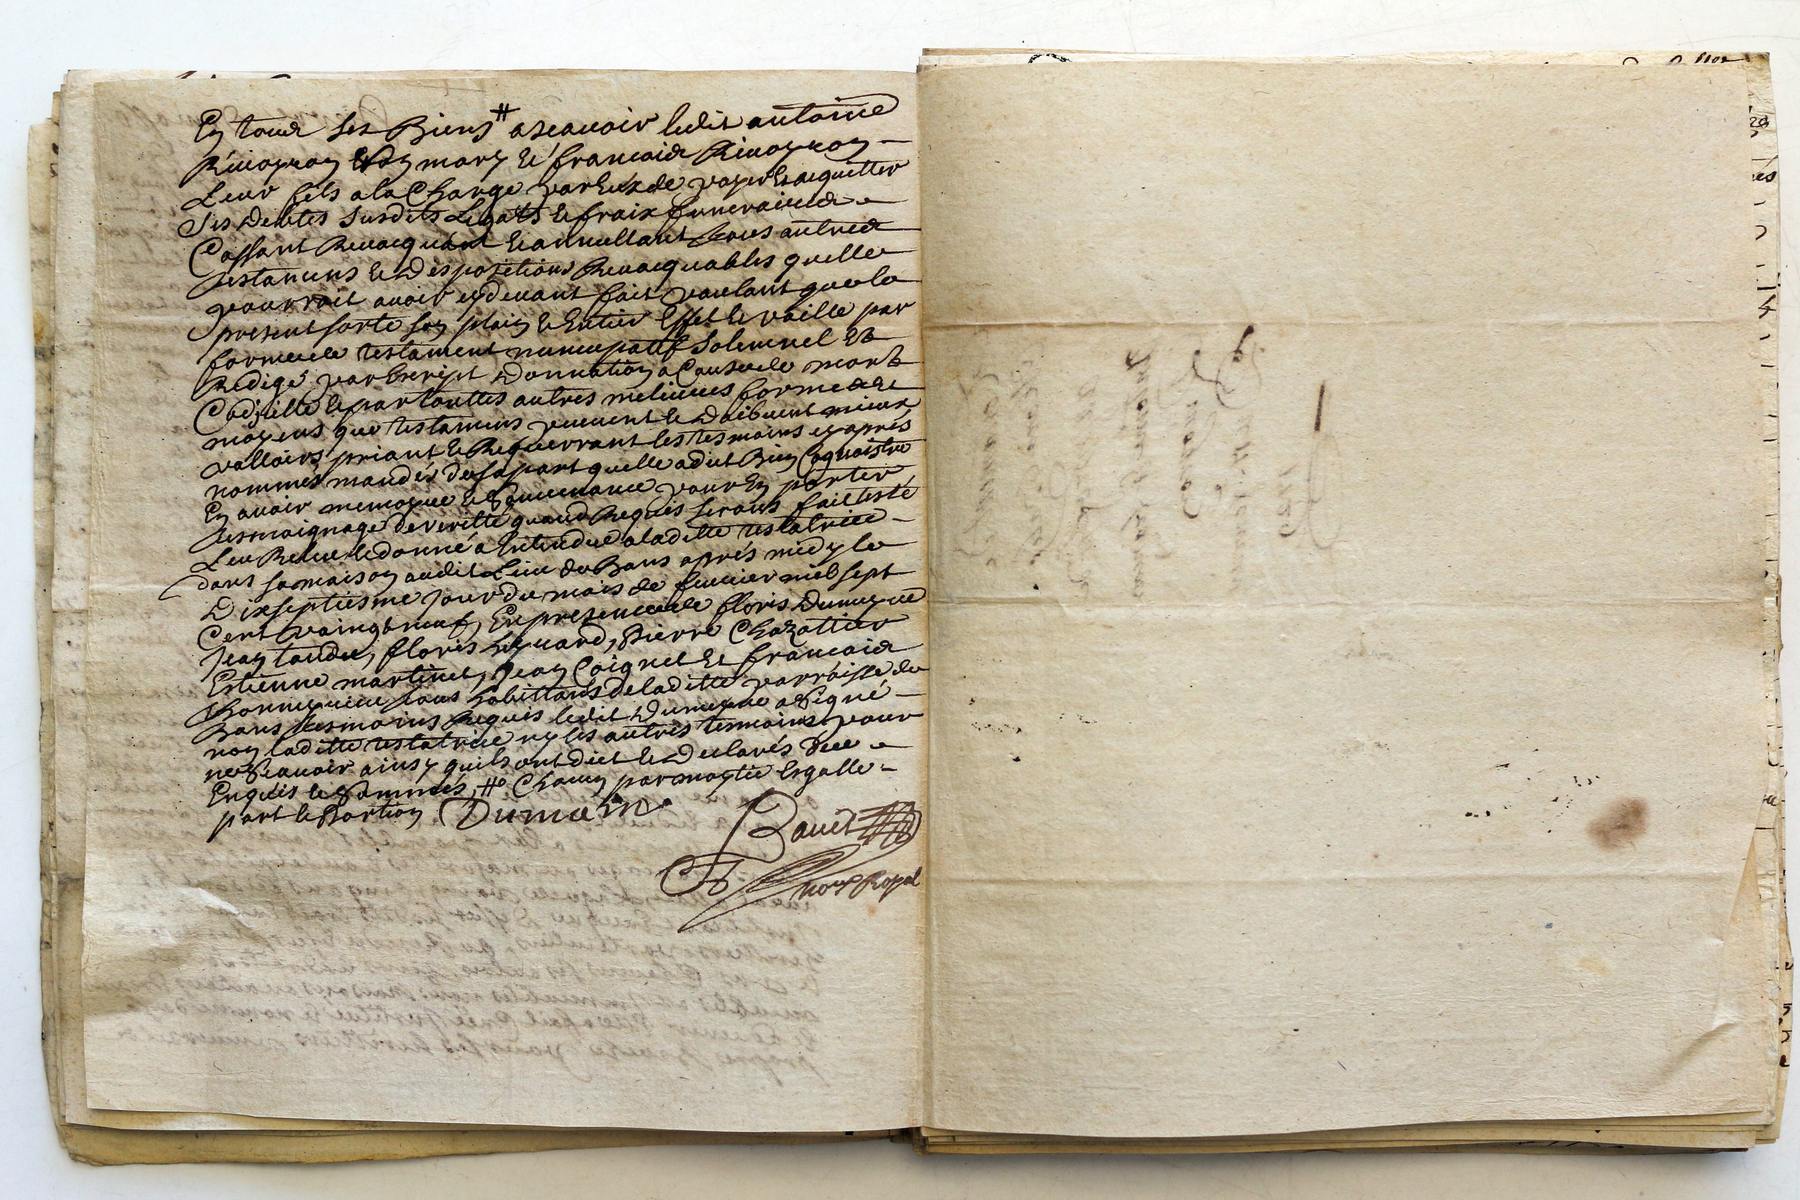 En tous ses Biens # ascauoir ledit antoine
mary & francois
Leur fils ala Charge par Eux de payer & acquitter
Ses debtes susdits Legatts & fraix funeraires
Cassant Reuocquant & annullant tous autres
testamens & dispositions Reuocquables quelle
pourroit auoir cy deuant fait voulant que le
present sorte son plain & Entier Effet & vaille par
forme de testament nuncupatif solemnel &
Redigé par Escript donnation a Cause de mort
Codicille & par touttes autres melieures formes &
moyens que testamens peuuent & doibuent mieux
valloir, priant & Requerrant les tesmoins cy aprés
nommés mandés de sa part quelle a dit Bien Cognoistre
En auoir memoyre & souuenance pour En porter
tesmoignage de veritté quand Requis seront fait
Leu Releu & donné a Entendre a laditte testatrice
dans sa maison audit Lieu de Bans aprés midy le
Dixseptiesme jour du mois de feurier mil sept
Cent vaingt neuf, En presence de floris
Jean floris Pierre Chazottier
Estienne martinet, Jean Coignet & francois
tous habittans de laditte parroisse de
Bans tesmoins Requis ledit a signé
non laditte testatrice ny les autres tesmoins pour
ne scauoir ainsy quils ont dict & declarés de ce
Enquis & sommés, # Chacun par moytié Esgalle
part & Portion
nore Royal